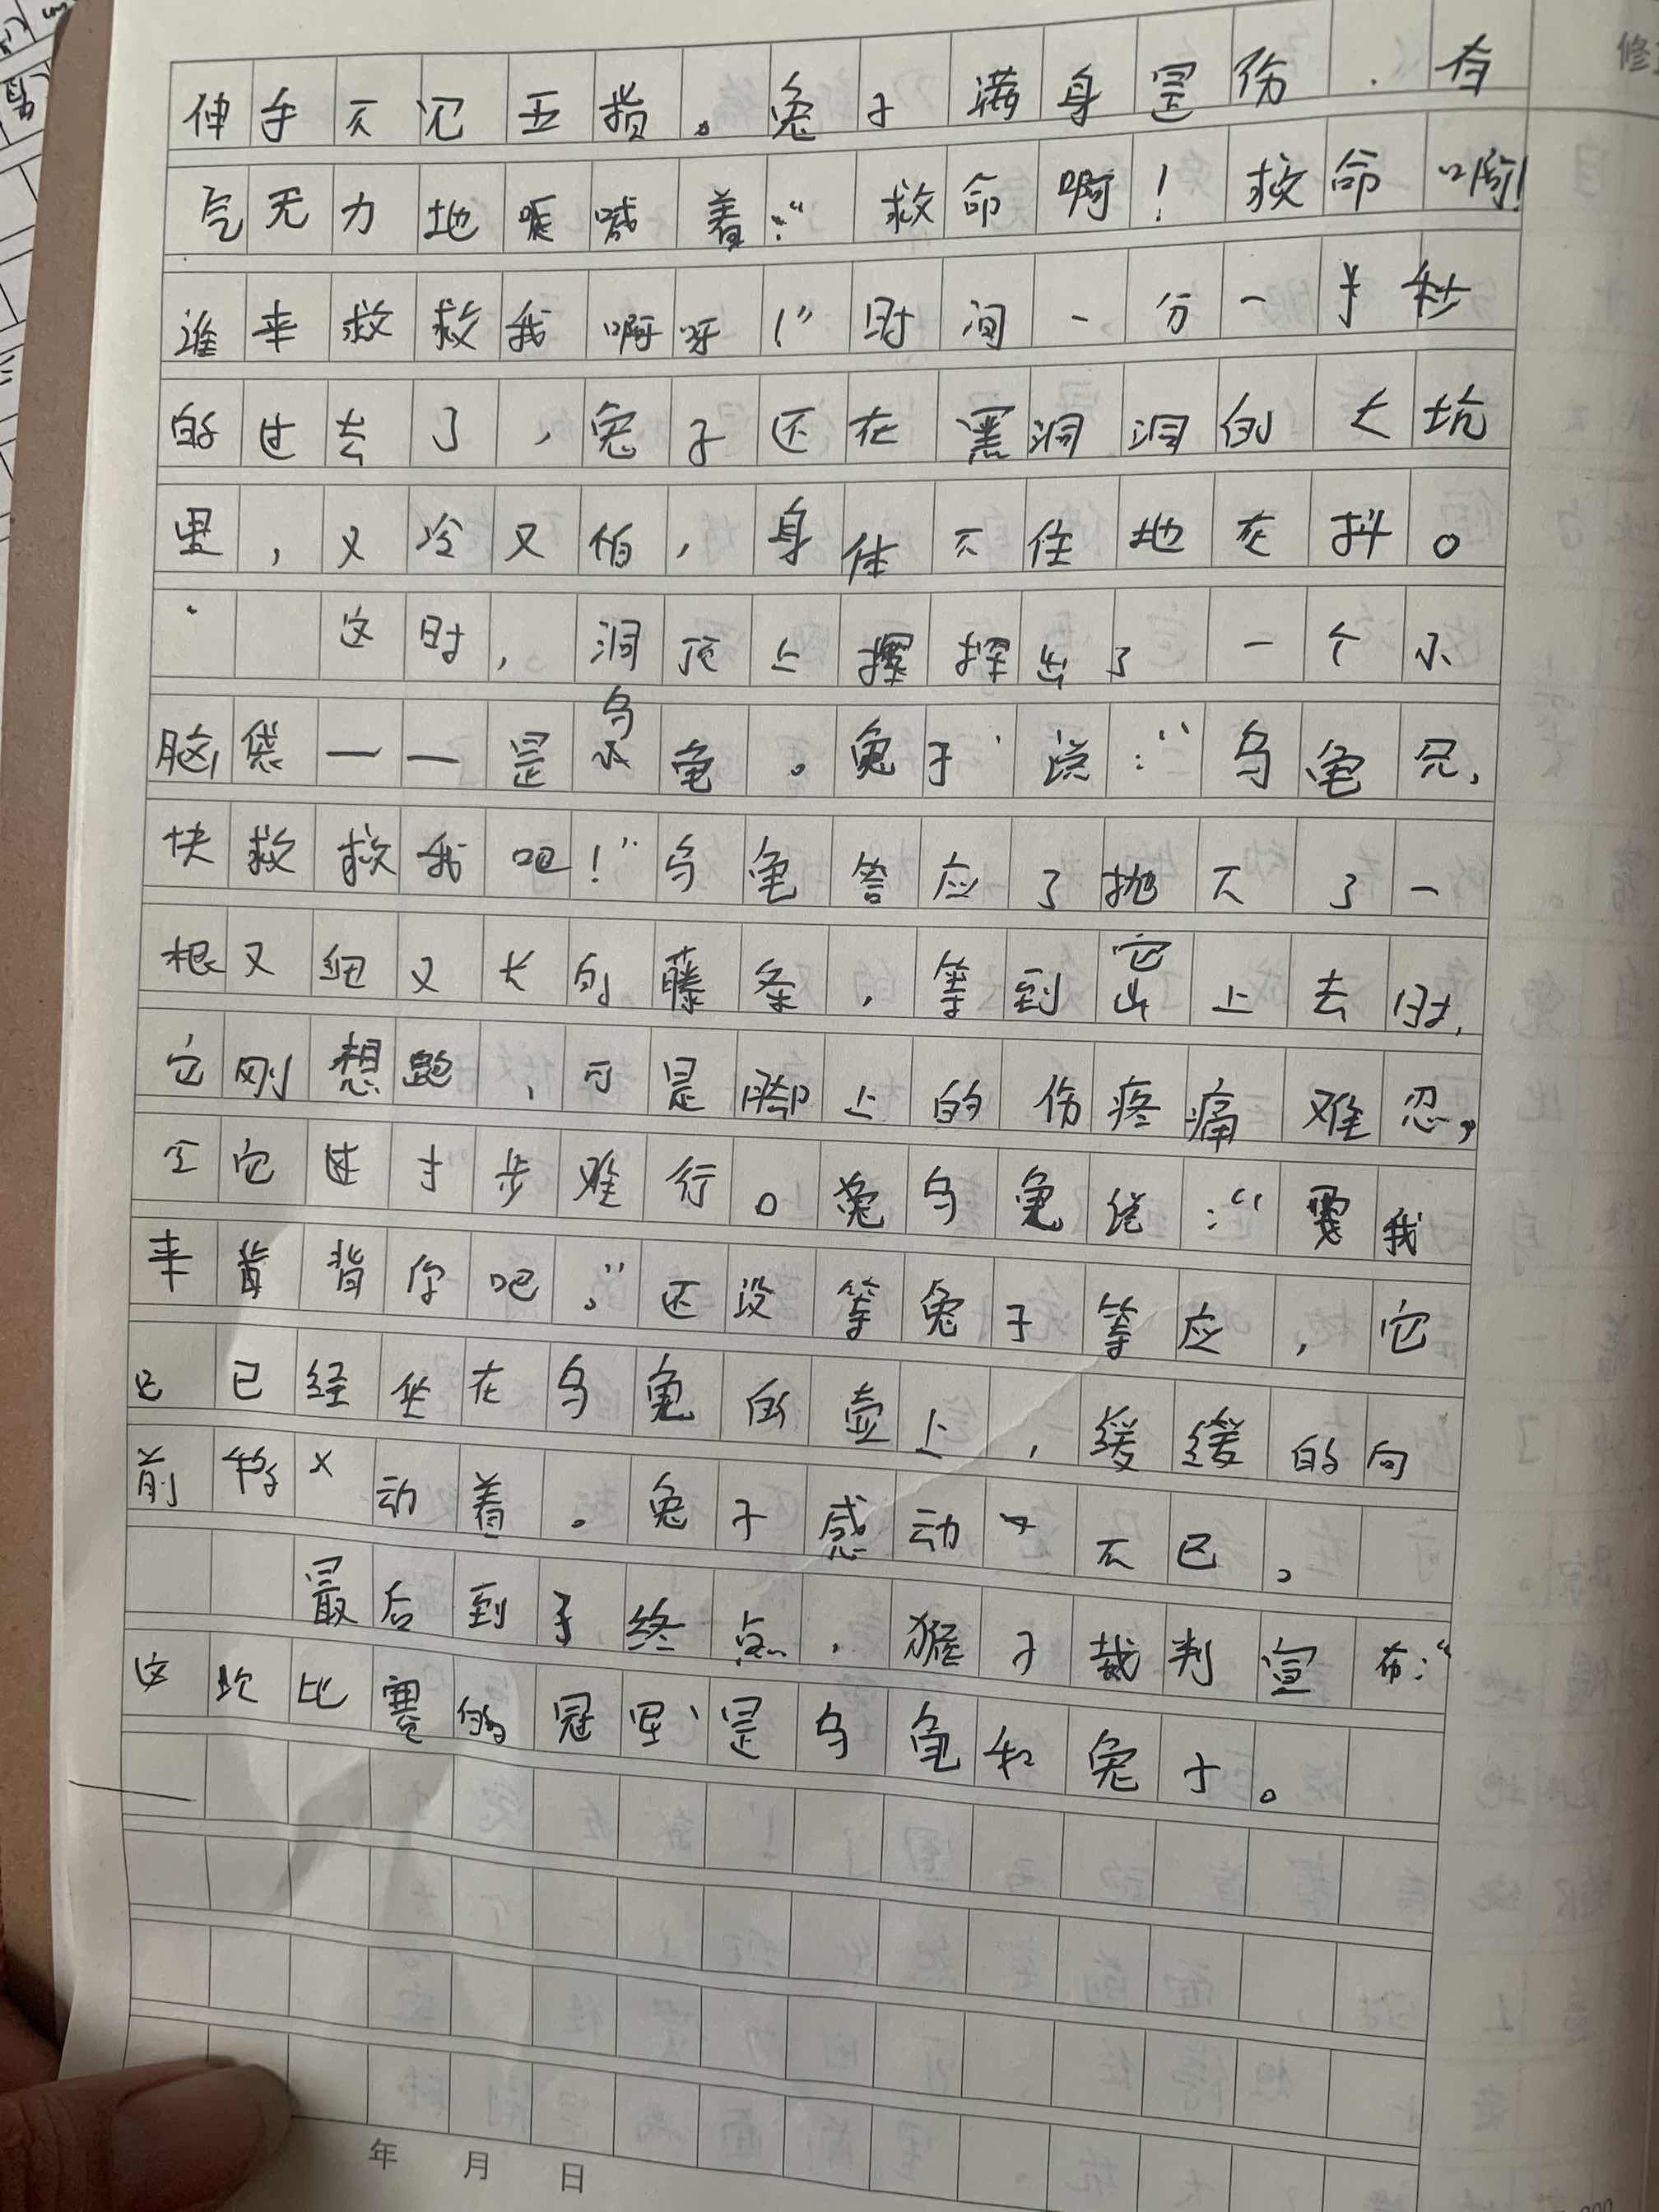 修
伸手不见五指。兔子满身是伤,有
气无力地喊着:“救命啊!救命啊!
谁来救救我啊呀!”时间一分一秒
的过去了,兔子还在黑洞洞的大坑
里,又冷又怕,身体不住地在抖。
这时,洞顶上探出了一个小
脑袋——是乌龟。兔子说:“乌龟兄,
快救救我吧!”乌龟答应了抛下了一
根又细又长的藤条,等到它上去时,
它刚想跑,可是脚上的伤疼痛难忍,
它步难行。乌龟说:“要我
来背背你吧。”还没等兔子等应,它
已经坐在乌龟的壳上,缓缓的向
前移动着。兔子感动不已。
最后到了终点,猴子裁判宣布:“
这次比赛的冠军是乌龟和兔子。
年 月 日